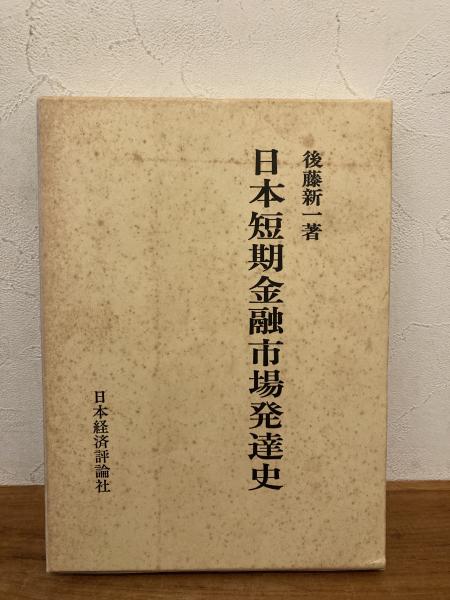 後藤新一著
日本短期金融市場発達史
日本経済評論社